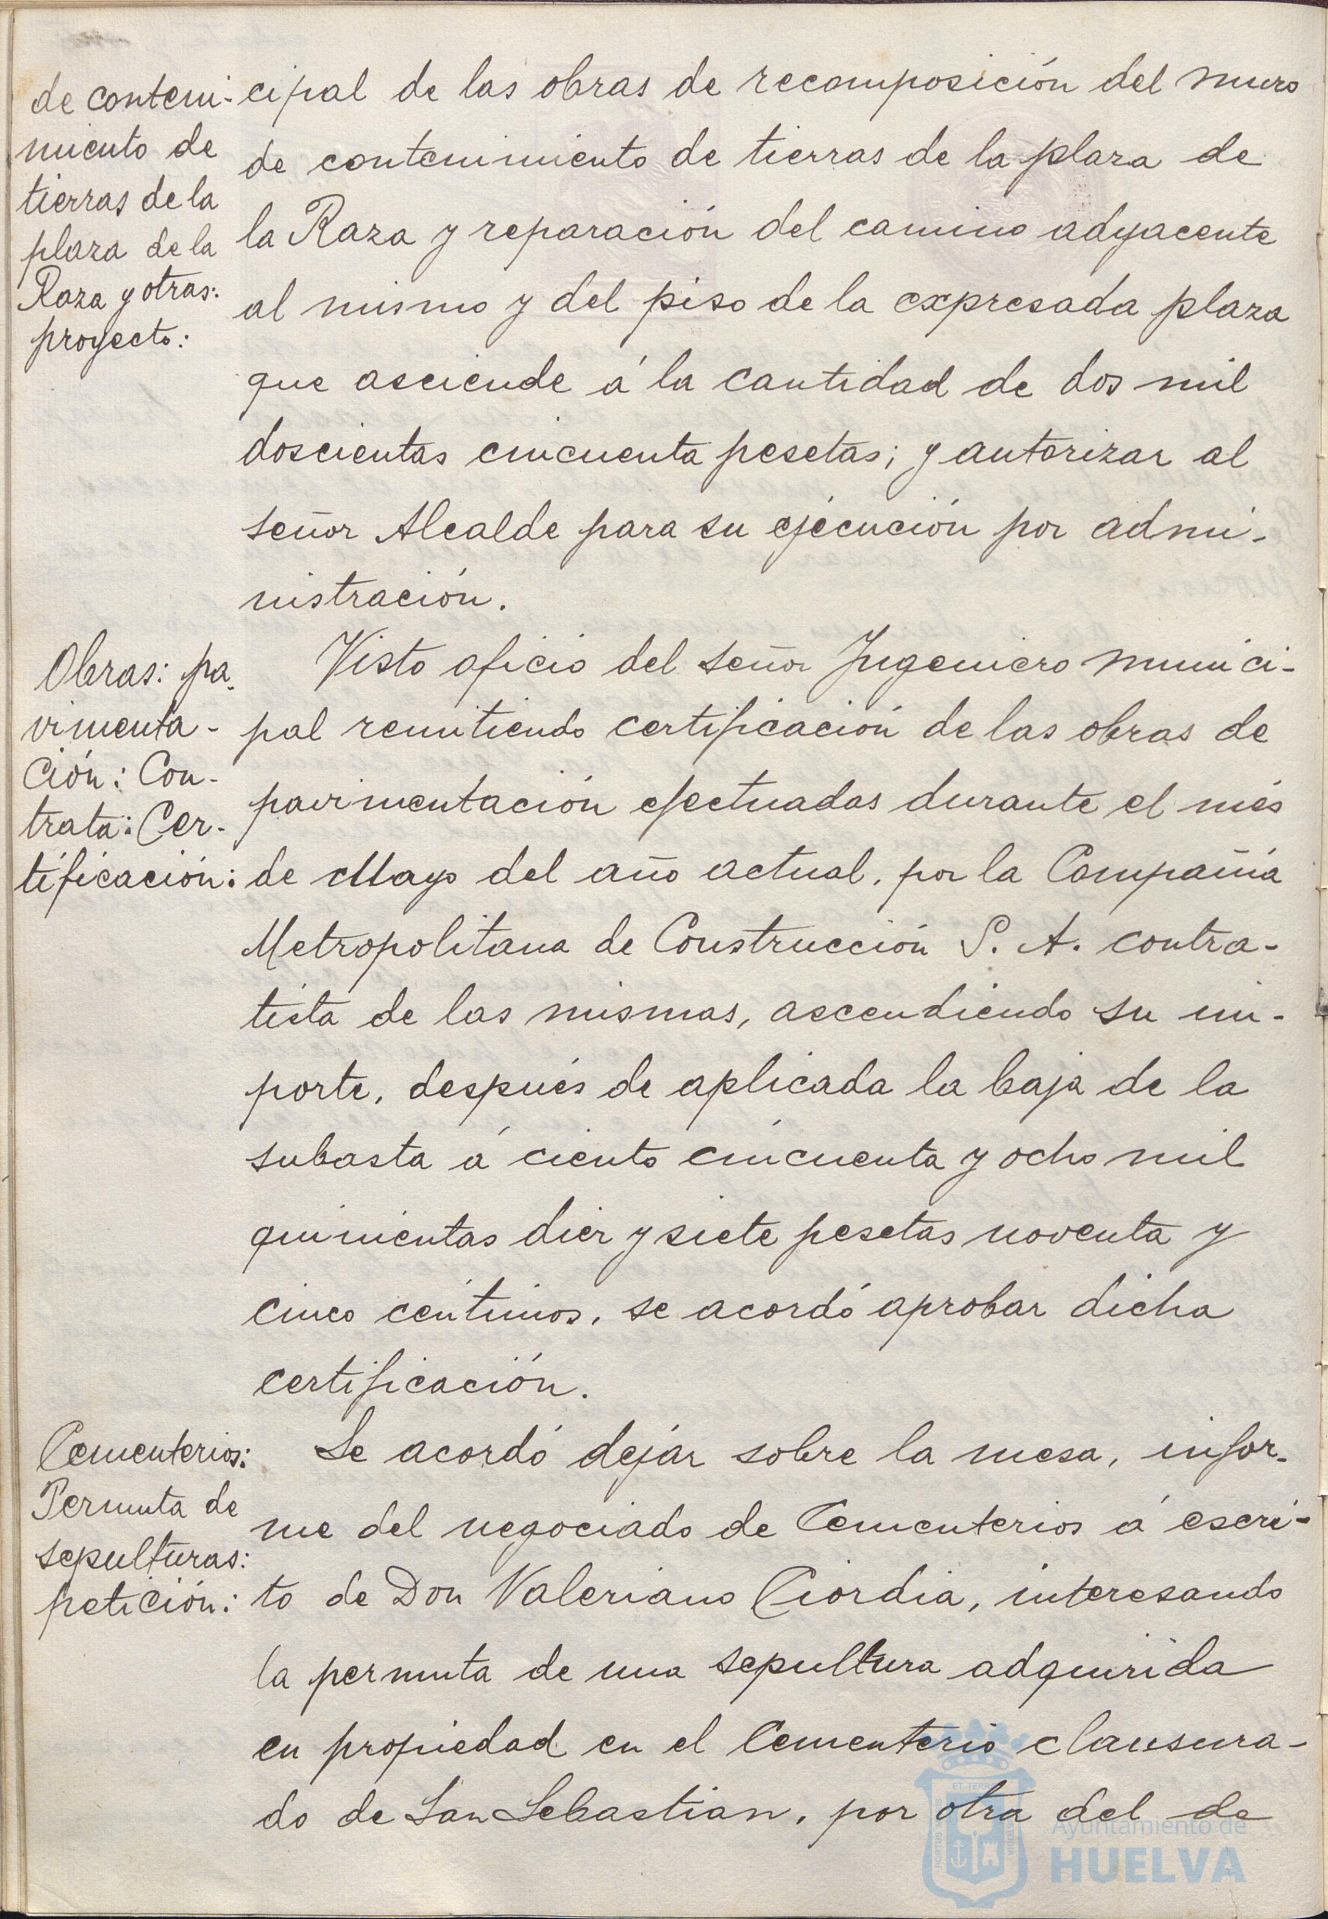 de conteni-
miento de
tierras de la
plaza de la
Raza y otras:
proyecto:
cipal de las obras de recomposición del muro
de contenimiento de tierras de la plaza de
la Raza y reparación del camino adyacente
al mismo y del piso de la expresada plaza
que asciende á la cantidad de dos mil
doscientas cincuenta pesetas; y autorizar al
señor Alcalde para su ejécución por admi-
nistración.
Obras: pa-
vimenta-
ción: Con-
trata: Cer-
tificación:
Visto oficio del señor Ingeniero munici-
pal remitiendo certificación de las obras de
pavimentación efectuadas durante el més
de Mayo del año actual, por la Compañía
Metropolitana de Construcción S. A. contra-
tista de las mismas, ascendiendo su im-
porte, después de aplicada la baja de la
subasta á ciento cincuenta y ocho mil
quinientas diez y siete pesetas noventa y
cinco céntimos, se acordó aprobar dicha
certificación.
Cementerios:
Permuta de
sepulturas:
petición:
Se acordó dejár sobre la mesa, infor-
me del negociado de Cementerios á escri-
to de Don Valeriano Ciordia, interesando
la permuta de una sepultura adquirida
en propiedad en el Cementerio clausura-
do de San Sebastian, por otra del de
Ayuntamiento de
HUELVA